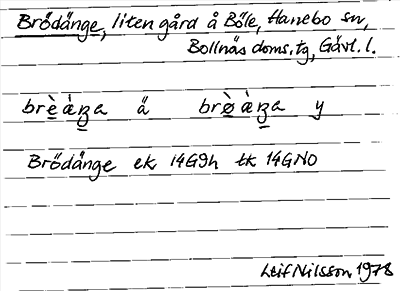 Brödånge, liten gård å Böle, Hanebo sn,
Bollnäs doms. tg, Gävl. l.
brèȧŋa ä brø̀ȧŋa y
Brödånge ek 14G9h tk 14GNO
Leif Nilsson 1978